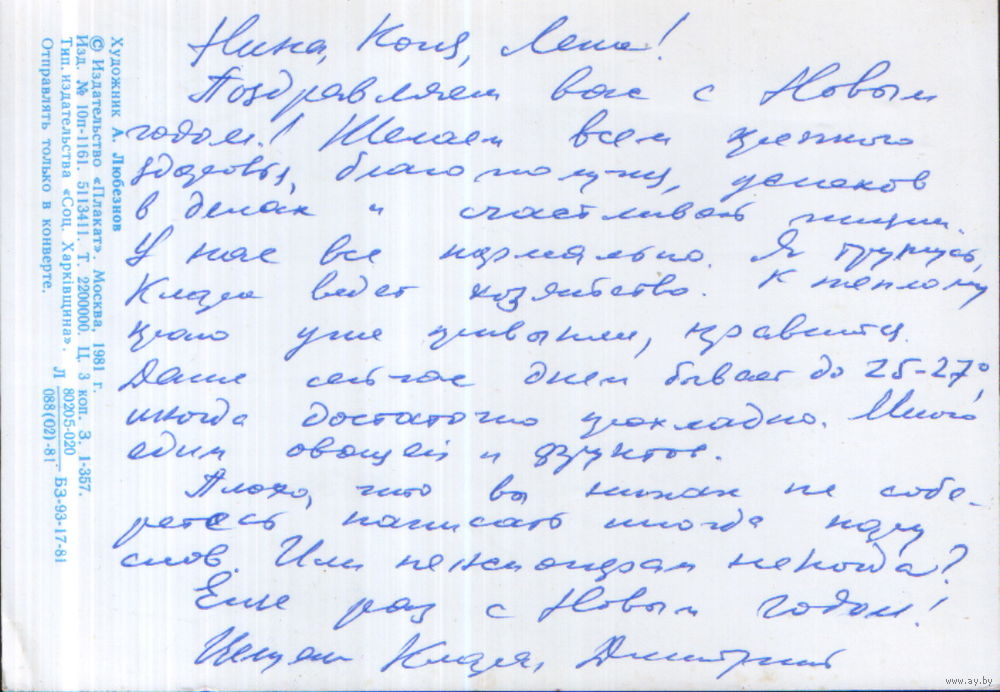 Нина, Коля, Лена!
Поздравляем вас с Новым
годом! Желаем всем крепкого
здоровья, благополучия, успехов
в делах и счастливой жизни.
У нас все нормально. Я тружусь,
Клара ведет хозяйство. К теплому
краю уже привыкли, нравится.
Даже сейчас днем бывает до 25-27°,
иногда достаточно прохладно. Много
едим овощей и фруктов.
Плохо, что вы никак не собе-
ретесь написать иногда пару
слов. Или пенсионерам некогда?
Еще раз с Новым годом!
Целуем Клара, Дмитрий
Художник А. Любезнов
© Издательство «Плакат». Москва. 1981 г.
Изд. № 10п-1161. 5113411. Т. 2200000. Ц. 3 коп. З. 1-357.
Тип. издательства «Соц. Харкiвщина». Л 80205-020
088(02)-81 БЗ-93-17-81
Отправлять только в конверте.
www.ay.by